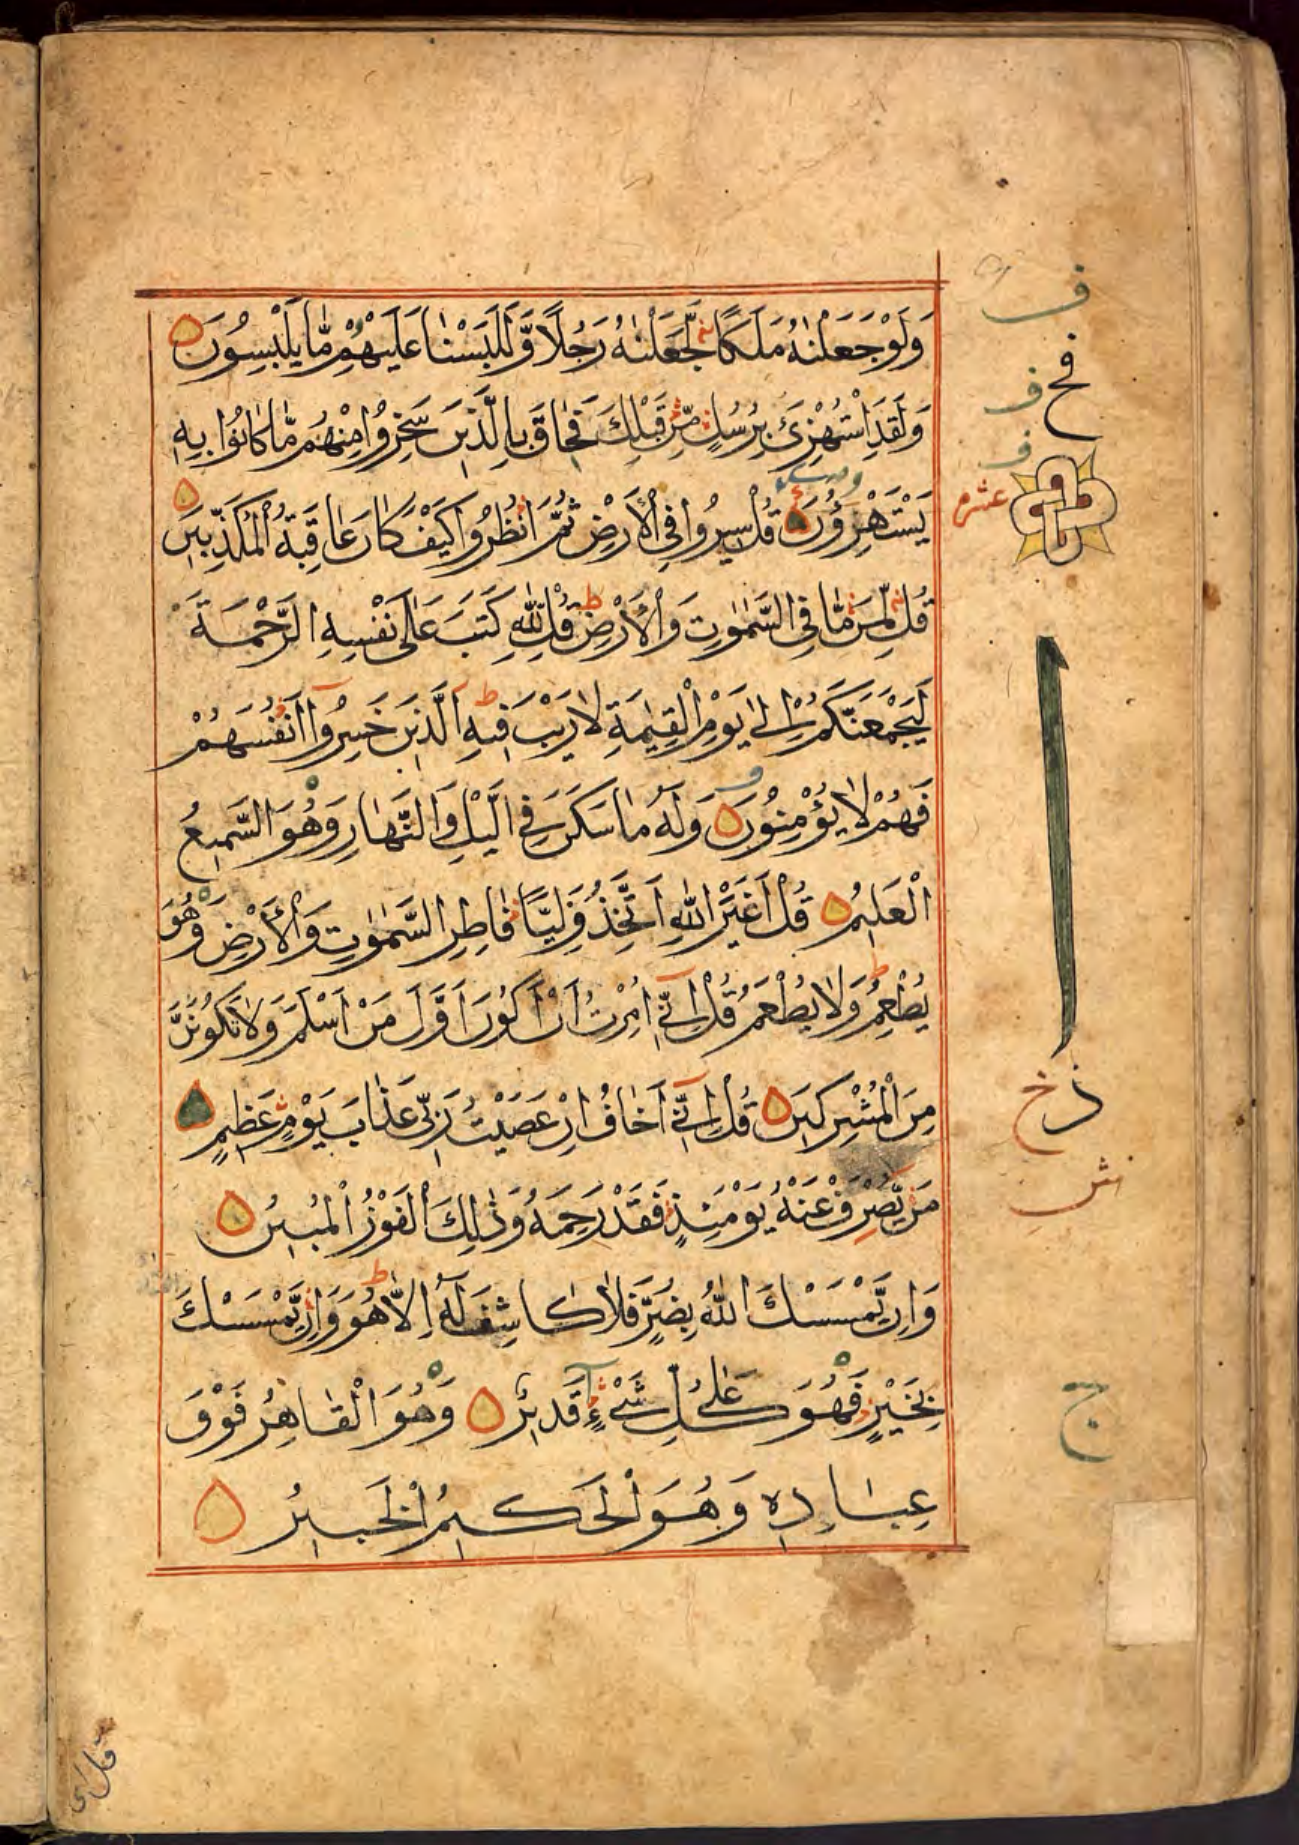 وَلَوْ جَعَلْنٰهُ مَلَكًا لَّجَعَلْنٰهُ رَجُلًا وَّلَلَبَسْنَا عَلَيْهِمْ مَّا يَلْبِسُونَ
وَلَقَدِ اسْتُهْزِئَ بِرُسُلٍ مِّنْ قَبْلِكَ فَحَاقَ بِالَّذِينَ سَخِرُوا مِنْهُمْ مَّا كَانُوا بِهِ
يَسْتَهْزِؤُنَ قُلْ سِيرُوا فِي الْأَرْضِ ثُمَّ انْظُرُوا كَيْفَ كَانَ عَاقِبَةُ الْمُكَذِّبِينَ
قُلْ لِّمَنْ مَّا فِي السَّمٰوٰتِ وَالْأَرْضِ ط قُلْ لِلّٰهِ كَتَبَ عَلٰى نَفْسِهِ الرَّحْمَةَ
لَيَجْمَعَنَّكُمْ اِلٰى يَوْمِ الْقِيٰمَةِ لَا رَيْبَ فِيهِ ط اَلَّذِينَ خَسِرُوا اَنْفُسَهُمْ
فَهُمْ لَا يُؤْمِنُونَ وَلَهُ مَا سَكَنَ فِي الَّيْلِ وَالنَّهَارِ وَهُوَ السَّمِيعُ
الْعَلِيمُ قُلْ اَغَيْرَ اللّٰهِ اَتَّخِذُ وَلِيًّا فَاطِرِ السَّمٰوٰتِ وَالْأَرْضِ وَهُوَ
يُطْعِمُ وَلَا يُطْعَمُ ط قُلْ اِنِّي اُمِرْتُ اَنْ اَكُونَ اَوَّلَ مَنْ اَسْلَمَ وَلَا تَكُونَنَّ
مِنَ الْمُشْرِكِينَ قُلْ اِنِّي اَخَافُ اِنْ عَصَيْتُ رَبِّي عَذَابَ يَوْمٍ عَظِيمٍ
مَنْ يُّصْرَفْ عَنْهُ يَوْمَئِذٍ فَقَدْ رَحِمَهُ وَذٰلِكَ الْفَوْزُ الْمُبِينُ
وَاِنْ يَّمْسَسْكَ اللّٰهُ بِضُرٍّ فَلَا كَاشِفَ لَهُ اِلَّا هُوَ ط وَاِنْ يَّمْسَسْكَ
بِخَيْرٍ فَهُوَ عَلٰى كُلِّ شَيْءٍ قَدِيرٌ وَهُوَ الْقَاهِرُ فَوْقَ
عِبَادِهِ وَهُوَ الْحَكِيمُ الْخَبِيرُ
ف
ف
ف
عشره
ج